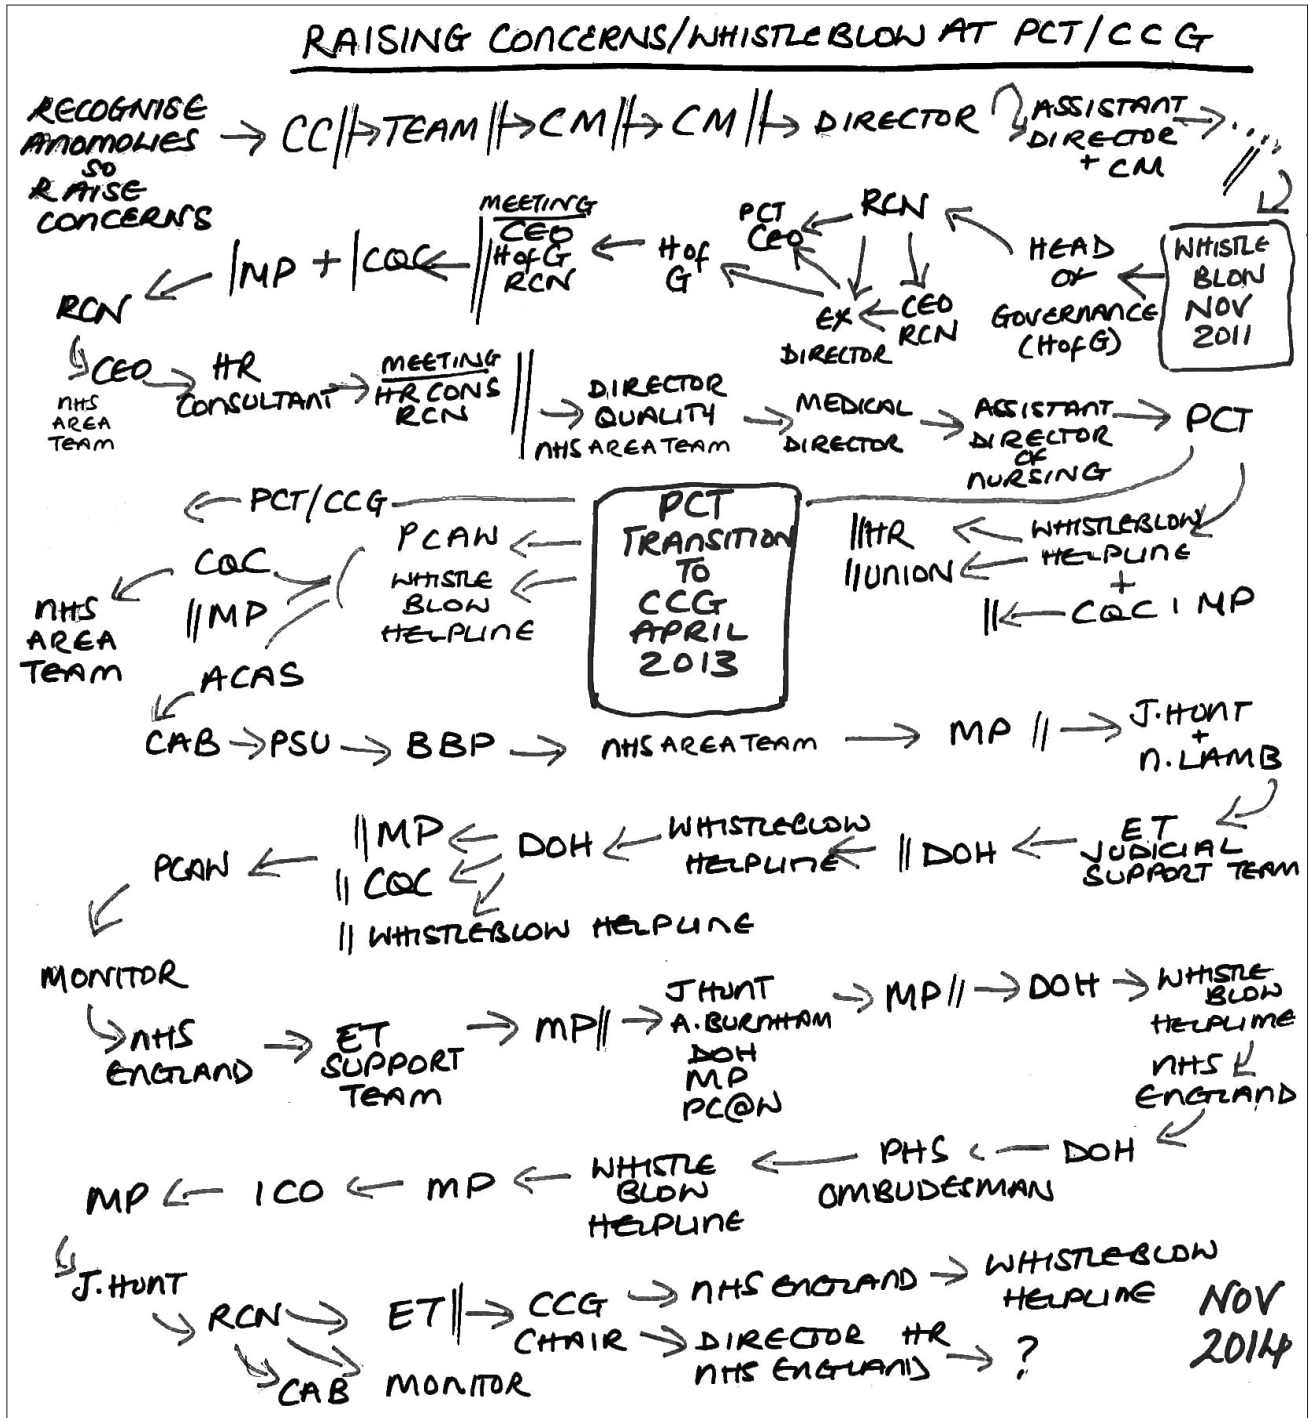 RAISING CONCERNS/WHISTLEBLOW AT PCT/CCG
RECOGNISE
ANOMOLIES
SO
RAISE
CONCERNS
→ CC||→TEAM||→CM||→ CM||→ DIRECTOR
ASSISTANT
DIRECTOR
+ CM
→ ....
//
WHISTLE
BLON
NOV
2011
HEAD
OF
GOVERNANCE
(HofG)
RCN
PCT
CEO
CEO
RCN
EX
DIRECTOR
H of
G
MEETING
CEO
HofG
RCN
|MP + |CQC
RCN
CEO
NHS
AREA
TEAM
HR
CONSULTANT
MEETING
HR CONS
RCN
||
DIRECTOR
QUALITY
NHS AREA TEAM
MEDICAL
DIRECTOR
ASSISTANT
DIRECTOR
OF
NURSING
PCT
WHISTLEBLOW
HELPLINE
+
||← CQC | MP
||HR
||UNION
PCT
TRANSITION
TO
CCG
APRIL
2013
← PCT/CCG
PCAW
WHISTLE
BLOW
HELPLINE
CQC
||MP
ACAS
NHS
AREA
TEAM
CAB → PSU → BBP → NHS AREA TEAM → MP || →
J.HUNT
+
N.LAMB
ET
JUDICIAL
SUPPORT TEAM
|| DOH
WHISTLEBLOW
HELPLINE
DOH
||MP
|| CQC
|| WHISTLEBLOW HELPLINE
PCAW
MONITOR
NHS
ENGLAND
ET
SUPPORT
TEAM
→ MP|| →
J HUNT
A.BURNHAM
DOH
MP
PC@W
→ MP|| → DOH →
WHISTLE
BLOW
HELPLIME
NHS
ENGLAND
DOH
PHS
OMBUDESMAN
WHISTLE
BLOW
HELPLINE
MP ← ICO ← MP ←
J.HUNT
RCN
CAB
MONITOR
ET|| →
CCG
CHAIR
→ NHS ENGLAND →
WHISTLEBLOW
HELPLINE
→ DIRECTOR HR
NHS ENGLAND → ?
NOV
2014